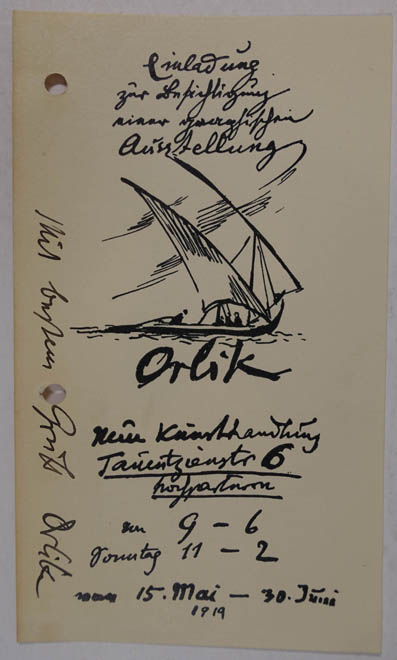 Einladung
zur Besichtigung
einer graphischen
Ausstellung
Orlik
Neue Kunsthandlung
Tauentzienstr 6
hochparterre
von 9 – 6
Sonntag 11 – 2
vom 15. Mai – 30. Juni
1919
Mit bestem Gruß Orlik